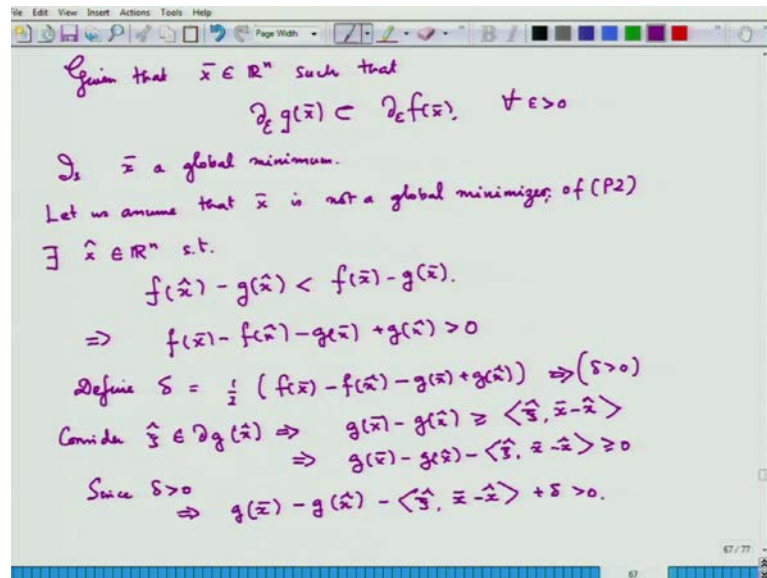 File Edit View Insert Actions Tools Help
Page Width
Given that x̄ ∈ ℝⁿ such that
∂_ε g(x̄) ⊂ ∂_ε f(x̄), ∀ ε>0
Is x̄ a global minimum.
Let us assume that x̄ is not a global minimizer of (P2)
∃ x̂ ∈ ℝⁿ s.t.
f(x̂) - g(x̂) < f(x̄) - g(x̄).
⇒ f(x̄) - f(x̂) - g(x̄) + g(x̂) > 0
Define δ = 1/2 (f(x̄) - f(x̂) - g(x̄) + g(x̂)) ⇒ (δ>0)
Consider ξ̂ ∈ ∂g(x̂) ⇒ g(x̄) - g(x̂) ≥ ⟨ξ̂, x̄ - x̂⟩
⇒ g(x̄) - g(x̂) - ⟨ξ̂, x̄ - x̂⟩ ≥ 0
Since δ>0
⇒ g(x̄) - g(x̂) - ⟨ξ̂, x̄ - x̂⟩ + δ > 0.
67 / 77
67